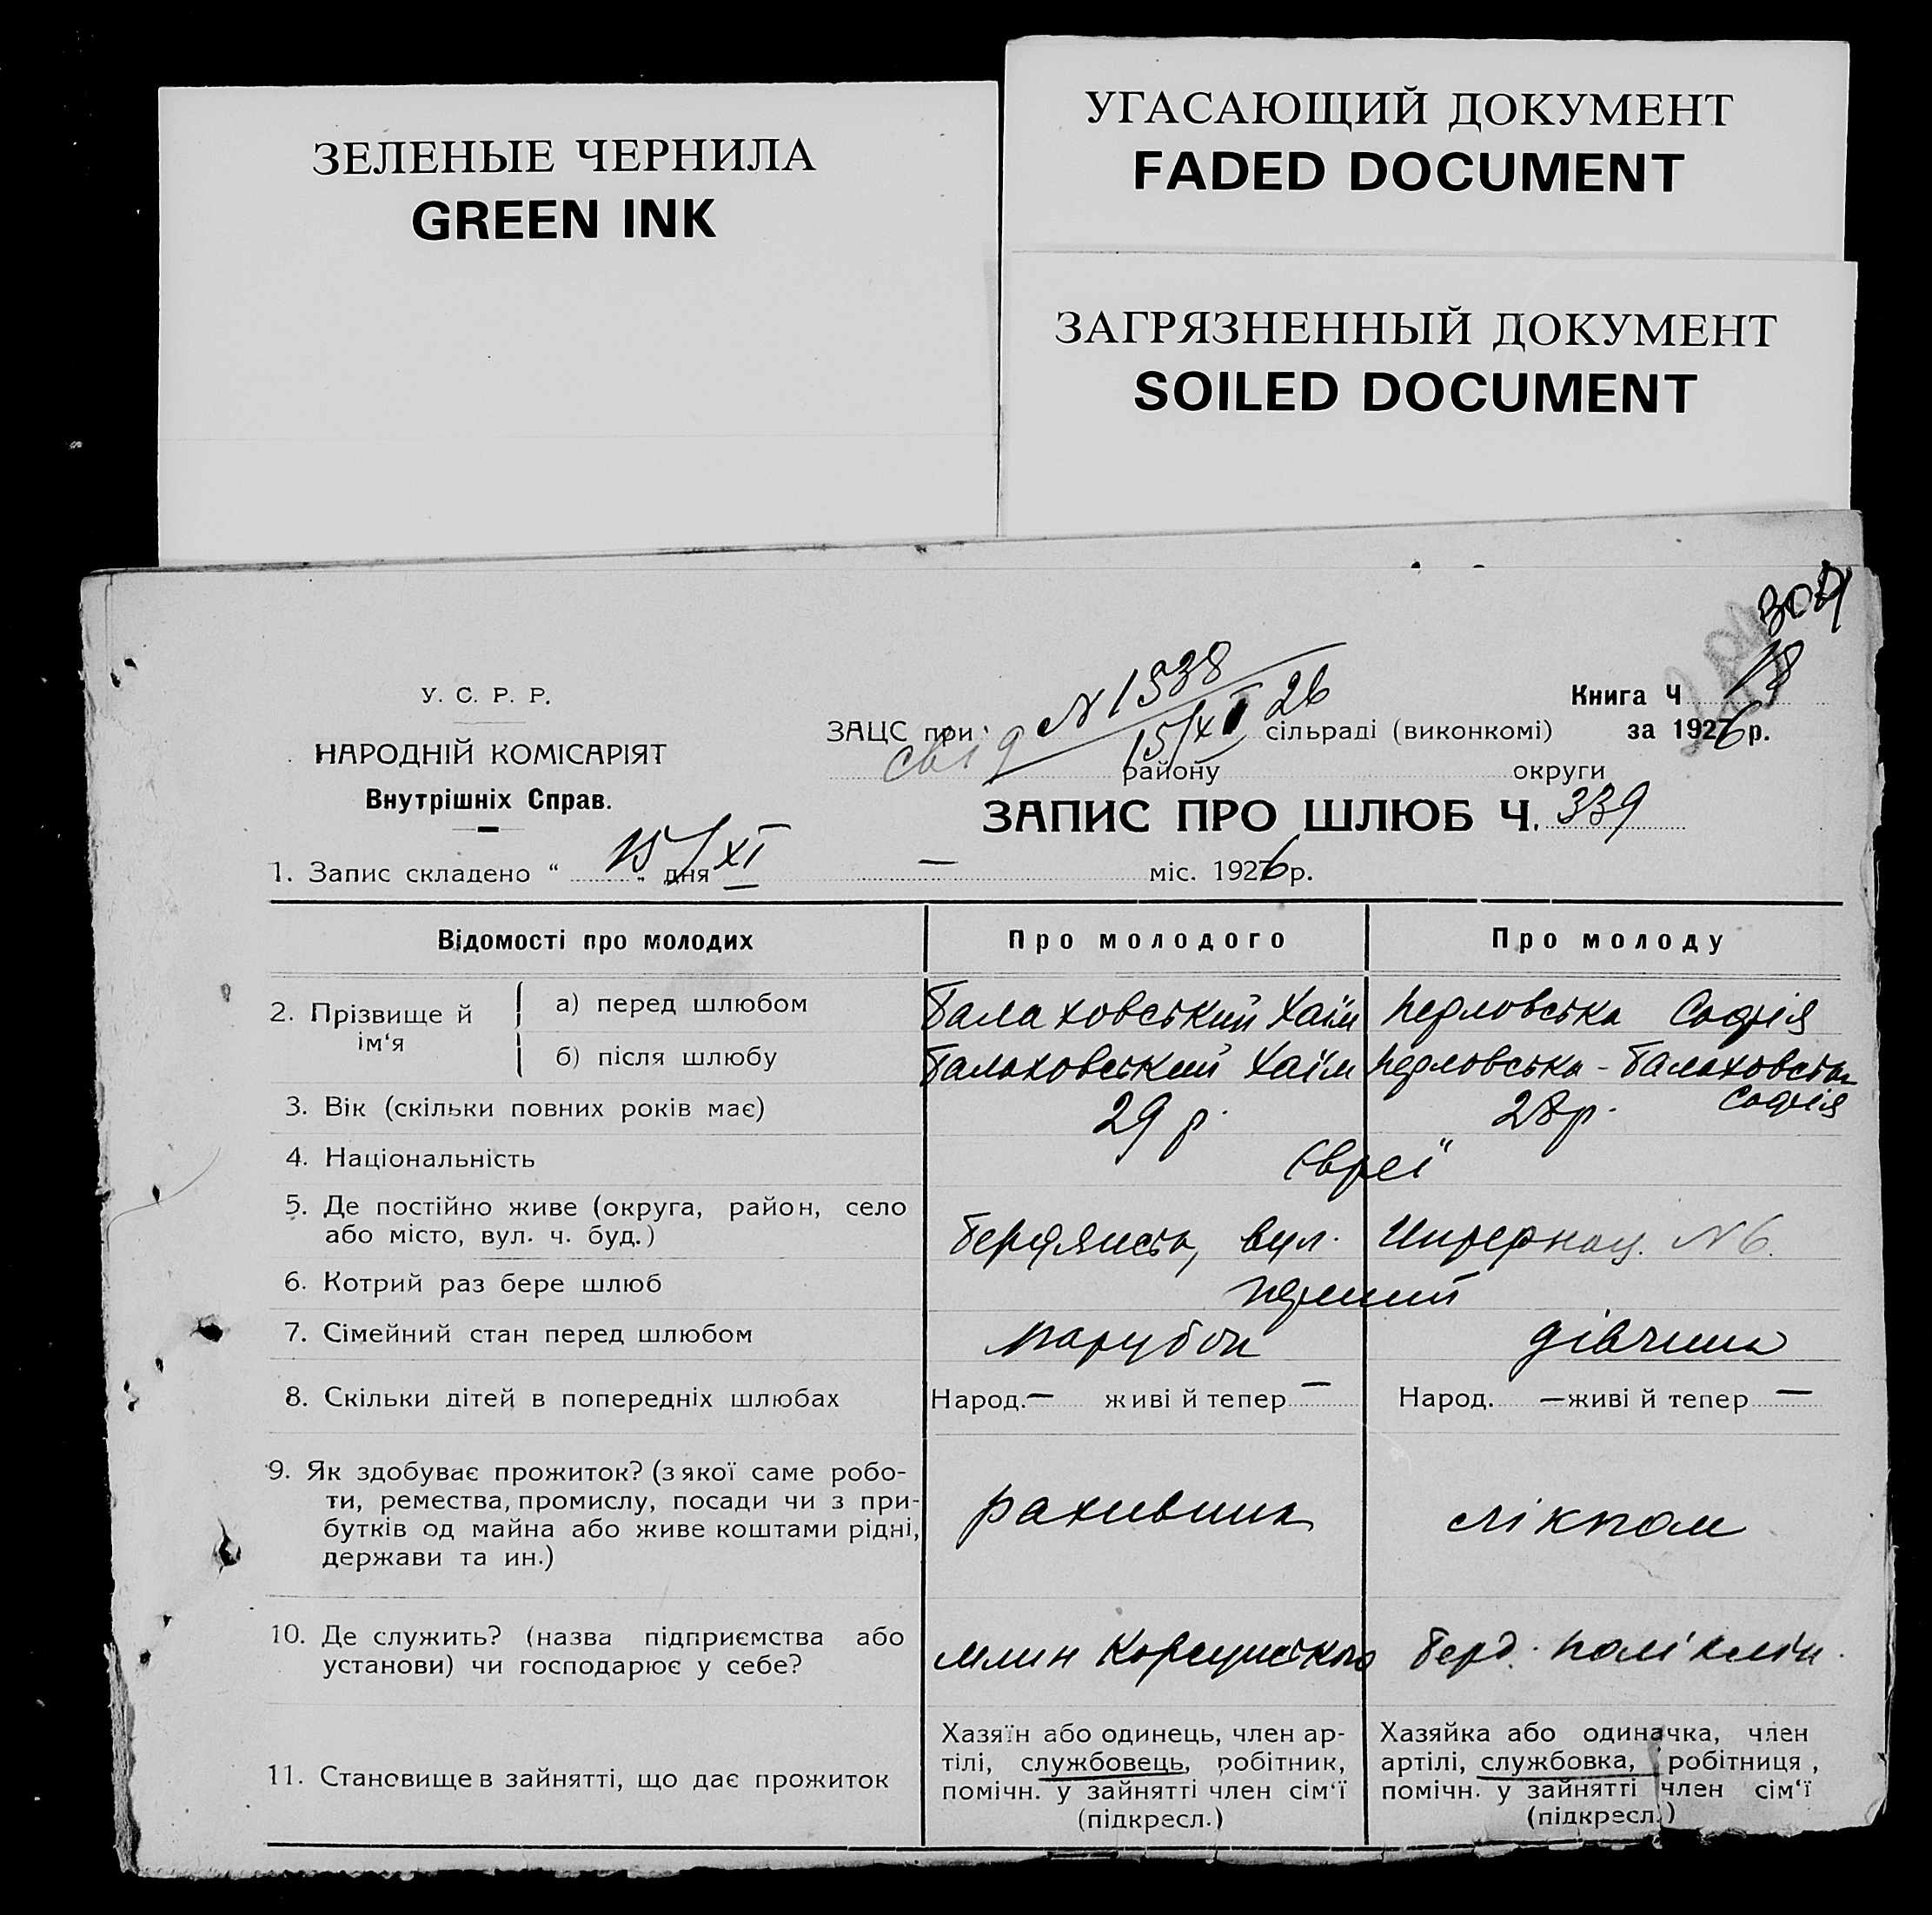 ЗЕЛЕНЫЕ ЧЕРНИЛА
GREEN INK
УГАСАЮЩИЙ ДОКУМЕНТ
FADED DOCUMENT
ЗАГРЯЗНЕННЫЙ ДОКУМЕНТ
SOILED DOCUMENT
У. С. Р. Р.
НАРОДНІЙ КОМІСАРІЯТ
Внутрішніх Справ.
N 1538
15/XI 26
Книга Ч 18
ЗАЦС при сільраді (виконкомі) за 1926 р.
свід
району округи
ЗАПИС ПРО ШЛЮБ Ч. 339
1. Запис складено “ 15 „ дня XI — міс. 1926 р.
Відомості про молодих Про молодого Про молоду
2. Прізвище й ім‘я
а) перед шлюбом Балаховський Хаїм Перловська Софія
б) після шлюбу Балаховський Хаїм Перловська - Балаховська Софія
3. Вік (скільки повних років має) 29 р. 28 р.
4. Національність Євреї
5. Де постійно живе (округа, район, село
або місто, вул. ч. буд.) Бердянськ, вул. Интернац. N 6.
6. Котрий раз бере шлюб перший
7. Сімейний стан перед шлюбом парубок дівчина
8. Скільки дітей в попередніх шлюбах Народ. — живі й тепер — Народ. — живі й тепер —
9. Як здобуває прожиток? (з якої саме робо-
ти, ремества, промислу, посади чи з при-
бутків од майна або живе коштами рідні,
держави та ин.)
рахивник лікпом
10. Де служить? (назва підприємства або
установи) чи господарює у себе?
млин Берд. полі клін.
11. Становище в зайнятті, що дає прожиток
Хазяїн або одинець, член ар-
тілі, службовець, робітник,
помічн. у зайнятті член сім‘ї
(підкресл.)
Хазяйка або одиначка, член
артілі, службовка, робітниця,
помічн. у зайнятті член сім‘ї
(підкресл.)